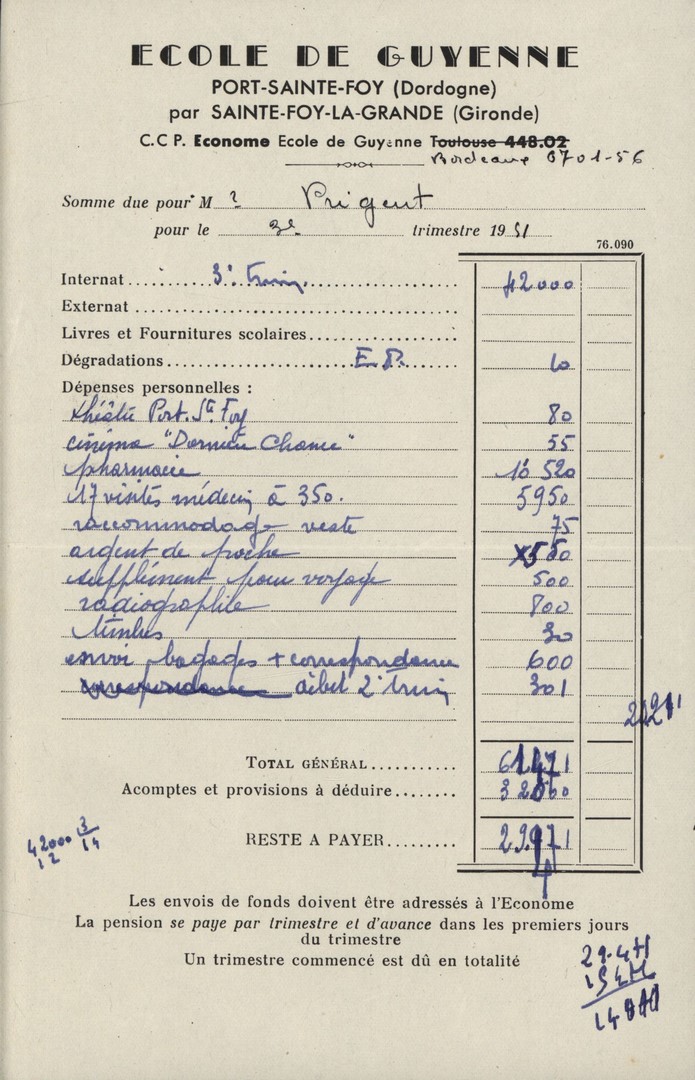 ECOLE DE GUYENNE
PORT-SAINTE-FOY (Dordogne)
par SAINTE-FOY-LA-GRANDE (Gironde)
C.C P. Econome Ecole de Guyenne Toulouse 448.02
Bordeaux 8701-56
Somme due pour M Prigent
pour le 3e trimestre 1951
76.090
Internat 3e trim. 42000
Externat
Livres et Fournitures scolaires
Dégradations E.P. 10
Dépenses personnelles :
théâtre Port. Ste Foy 80
cinéma "Dernière Chance" 55
pharmacie 10 520
17 visites médecin à 350. 5950
raccommodage veste 75
argent de poche 550
supplément pour voyage 500
radiographie 800
timbres 30
envoi bagages + correspondance 600
correspondance débet 2e trim 301
TOTAL GÉNÉRAL 61471
Acomptes et provisions à déduire 32000
42000 3/14
12
RESTE A PAYER 29471
4
Les envois de fonds doivent être adressés à l'Econome
La pension se paye par trimestre et d'avance dans les premiers jours
du trimestre
Un trimestre commencé est dû en totalité